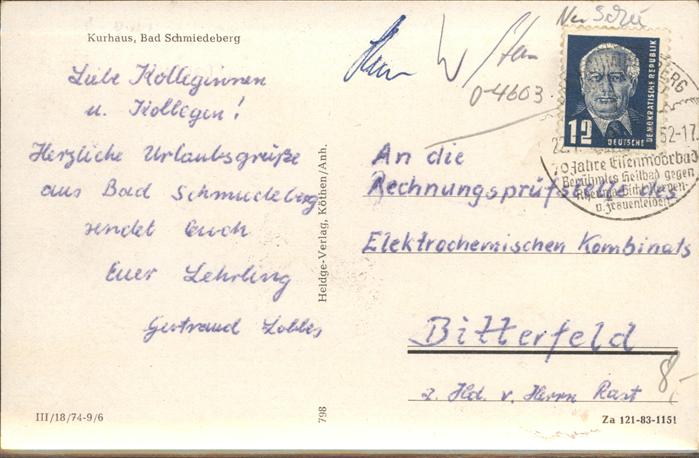 Kurhaus, Bad Schmiedeberg
Liebe Kolleginnen
u. Kollegen!
Herzliche Urlaubsgrüße
aus Bad Schmiedeberg
sendet Euch
Euer Lehrling
Gertraud
III/18/74-9/6
Heldge-Verlag, Köthen/Anh.
798
0-4603
12
DEUTSCHE
DEMOKRATISCHE REPUBLIK
52-17
70 Jahre Eisenmoorbad
Berühmtes Heilbad gegen
Rheuma, Gicht,
u. Frauenleiden
An die
Rechnungsprüfstelle des
Elektrochemischen Kombinats
Bitterfeld
z. Hd. v. Herrn Rast
8,-
Za 121-83-1151